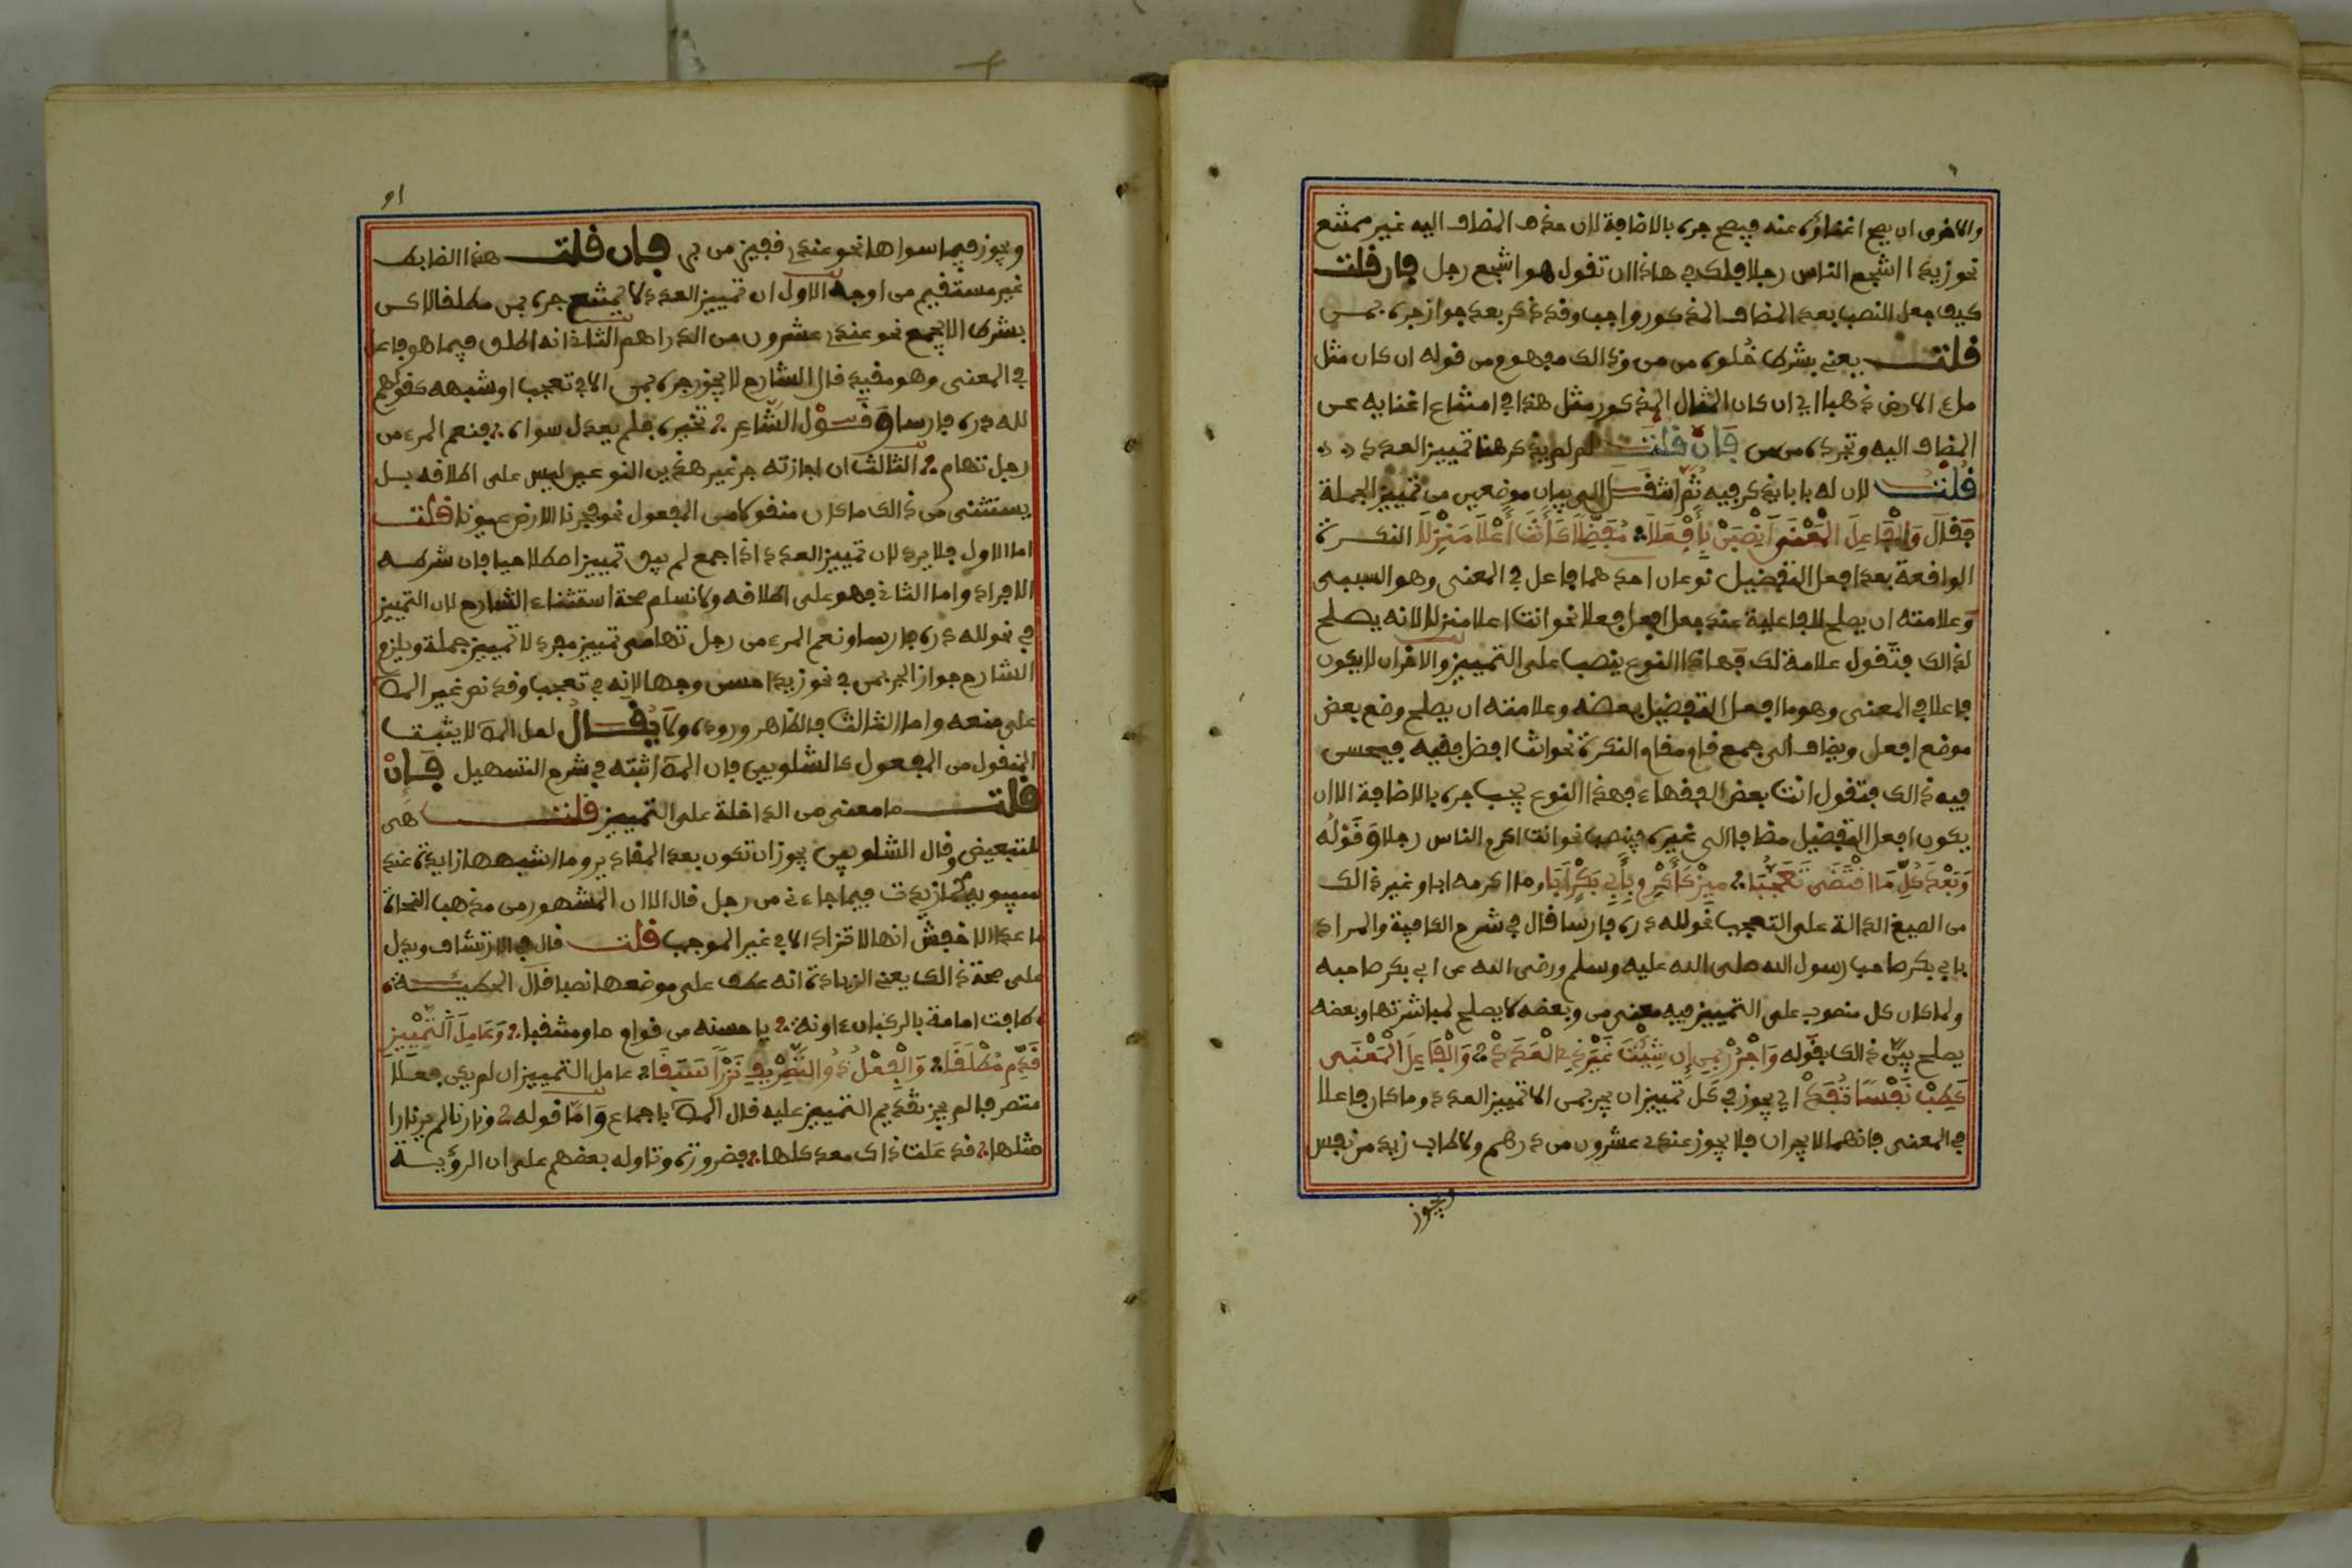 والاخرى ان يصح اغناؤه عنه فيصح جره بالاضافة لان حذف المضاف اليه غير ممتنع
نحو زيد اشجع الناس رجلا فلك في هاذا ان تقول هو اشجع رجل فان قلت
كيف جعل النصب بعد المضاف المذكور واجب وقد ذكر بعد جواز جره بمن
قلت يعني بشرط خلوه من من وذالك مفهوم من قوله ان كان مثل
ملء الارض ذهبا اي ان كان المثال المذكور مثل هذا في امتناع اغنايه عن
المضاف اليه وتجرده من من فان قلت لم لم يذكر هنا تمييز العدد
قلت لان له بابا يذكر فيه ثم انتقل الى بيان موضعين من تمييز الجملة
فقال والفاعل المعنى انصبن بافعلا مفضلا كانت اعلا منزلا النكرة
الواقعة بعد افعل التفضيل نوعان احدهما فاعل في المعنى وهو السببي
وعلامته ان يصلح للفاعلية عند جعل افعل فعلا نحو انت اعلا منزلا لانه يصلح
لذالك فتقول علا منزلك فهاذا النوع ينصب على التمييز والاخر ان لا يكون
فاعلا في المعنى وهو ما افعل التفضيل بعضه وعلامته ان يصلح وضع بعض
موضع افعل ويضاف الى جمع قام مقام النكرة نحو انت افضل فقيه فيحسن
فيه ذالك فتقول انت بعض الفقهاء فهذا النوع يجب جره بالاضافة الا ان
يكون افعل التفضيل مضافا الى غيره فينصب نحو انت اكرم الناس رجلا وقوله
وبعد كل ما اقتضى تعجبا ميز كاكرم بابي بكر ابا وما اكرمه ابا وغير ذالك
من الصيغ الدالة على التعجب نحو لله دره فارسا قال في شرح الكافية والمراد
بابي بكر صاحب رسول الله صلى الله عليه وسلم ورضي الله عن ابي بكر صاحبه
ولما كان كل منصوب على التمييز فيه معنى من وبعضه لا يصلح لمباشرتها وبعضه
يصلح بين ذالك بقوله واجرر بمن ان شئت غير ذي العدد والفاعل المعنى
كطب نفسا تفد اي يجوز في كل تمييز ان يجر بمن الا تمييز العدد وما كان فاعلا
في المعنى فانهما لا يجران فلا يجوز عندي عشرون من درهم ولا طاب زيد من نفس
ويجوز
91
ويجوز فيما سواها نحو عندي قفيز من بر فان قلت هذا الضابط
غير مستقيم من اوجه الاول ان تمييز العدد لا يمتنع جره بمن مطلقا لاكن
بشرط ان يجمع نحو عندي عشرون من الدراهم الثاني انه اطلق فيما هو فاعل
في المعنى وهو مقيد قال الشارح لا يجوز جره بمن الا في تعجب او شبهه كقولهم
لله دره فارسا وقول الشاعر تخيره فلم يعدل سواه فنعم المرء من
رجل تهام الثالث ان اجازته جر غير هذين النوعين ليس على اطلاقه بل
يستثنى من ذالك ما كان منقولا من المفعول نحو فجرنا الارض عيونا قلت
اما الاول فلا يرد لان تمييز العدد اذا جمع لم يبق تمييزا اصطلاحيا فان شرطه
الافراد واما الثاني فهو على اطلاقه ولا نسلم صحة استثناء الشارح لان التمييز
في نحو لله دره فارسا ونعم المرء من رجل تهامي تمييز مفرد لا تمييز جملة ويلزم
الشارح جواز الجر بمن في نحو زيد احسن وجها لانه في تعجب وقد نص غير المص
على منعه واما الثالث فالظاهر وروده ولا يقال لعل المص لا يثبت
المنقول من المفعول كالشلوبين فان المص اثبته في شرح التسهيل فان
قلت ما معنى من الداخلة على التمييز قلت هي
للتبعيض وقال الشلوبين يجوز ان تكون بعد المقادير وما اشبهها زايدة عند
سيبويه كما زيدت فيما جاءني من رجل قال الا ان المشهور من مذهب النحاة
ما عدا الاخفش انها لا تزاد الا في غير الموجب قلت قال في الارتشاف ويدل
على صحة ذالك يعني الزيادة انه عطف على موضعها نصبا قال الحطيئة
طافت امامة بالركبان ءاونة يا حسنه من قوام ما ومنتقبا وعامل التمييز
قدم مطلقا والفعل ذو التصريف نزرا سبقا عامل التمييز ان لم يكن فعلا
متصرفا لم يجز تقديم التمييز عليه قال المص باجماع واما قوله ونارنا لم ير نارا
مثلها قد علمت ذاك معد كلها فضرورة وتاوله بعضهم على ان الرؤية